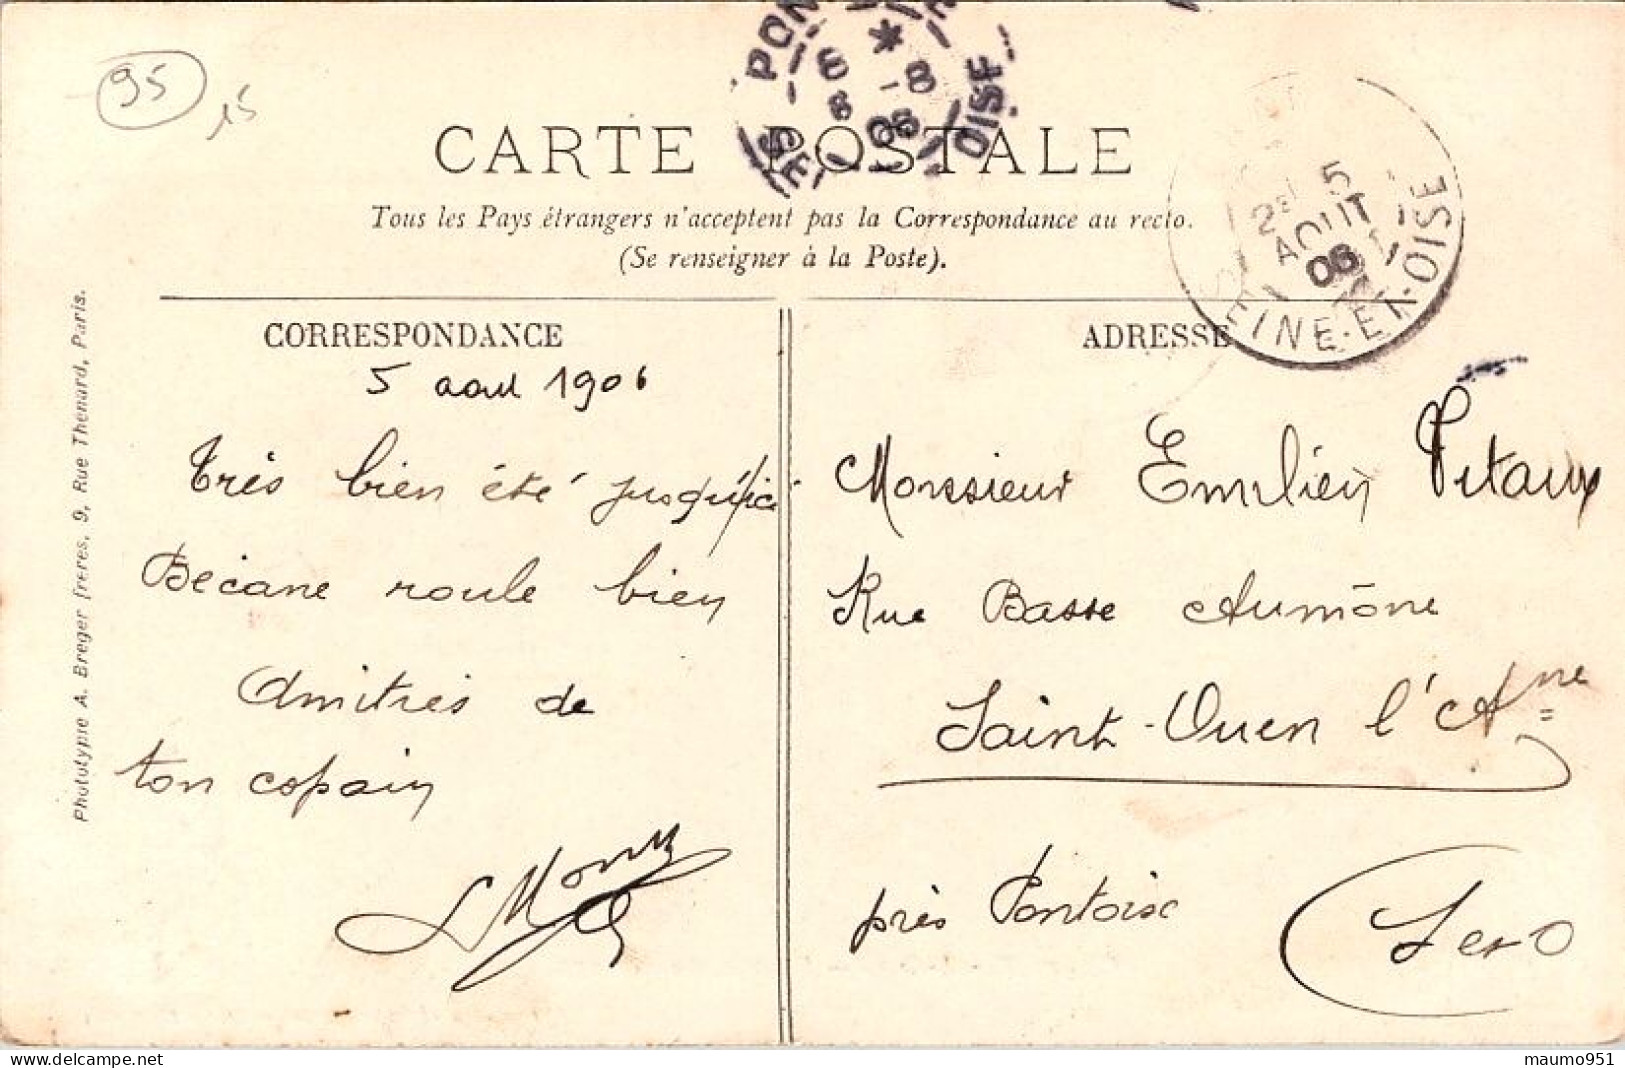 95
15
CARTE POSTALE
Tous les Pays étrangers n'acceptent pas la Correspondance au recto.
(Se renseigner à la Poste).
PON
SE
OISE
8
8-8
06
5
2E
AOUT
06
SEINE-ET-OISE
CORRESPONDANCE
5 aout 1906
Très bien été jusqu'ici
Becane roule bien
Amitiés de
ton copain
ADRESSE
Monssieur Emilien Vitaux
Rue Basse Aumône
Saint-Ouen l'Ane
près Pontoise
S et O
Phototypie A. Breger frères, 9, Rue Thénard, Paris.
maumo951